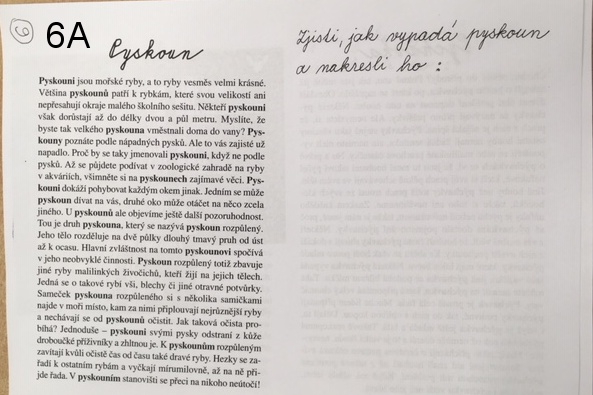 6
6A
Pyskoun
Pyskouni jsou mořské ryby, a to ryby vesměs velmi krásné.
Většina pyskounů patří k rybkám, které svou velikostí ani
nepřesahují okraje malého školního sešitu. Někteří pyskouni
však dorůstají až do délky dvou a půl metru. Myslíte, že
byste tak velkého pyskouna vměstnali doma do vany? Pys-
kouny poznáte podle nápadných pysků. Ale to vás zajisté už
napadlo. Proč by se taky jmenovali pyskouni, když ne podle
pysků. Až se půjdete podívat v zoologické zahradě na ryby
v akváriích, všimněte si na pyskounech zajímavé věci. Pys-
kouni dokáží pohybovat každým okem jinak. Jedním se může
pyskoun dívat na vás, druhé oko může otáčet na něco zcela
jiného. U pyskounů ale objevíme ještě další pozoruhodnost.
Tou je druh pyskouna, který se nazývá pyskoun rozpůlený.
Jeho tělo rozděluje na dvě půlky dlouhý tmavý pruh od úst
až k ocasu. Hlavní zvláštnost na tomto pyskounovi spočívá
v jeho neobvyklé činnosti. Pyskoun rozpůlený totiž zbavuje
jiné ryby malilinkých živočichů, kteří žijí na jejich tělech.
Jedná se o takové rybí vši, blechy či jiné otravné potvůrky.
Sameček pyskouna rozpůleného si s několika samičkami
najde v moři místo, kam za nimi připlouvají nejrůznější ryby
a nechávají se od pyskounů očistit. Jak taková očista pro-
bíhá? Jednoduše – pyskouni svými pysky odstraní z kůže
droboučké příživníky a zhltnou je. K pyskounům rozpůleným
zavítají kvůli očistě čas od času také dravé ryby. Hezky se za-
řadí k ostatním rybám a vyčkají mírumilovně, až na ně při-
jde řada. V pyskouním stanovišti se přeci na nikoho neútočí!
Zjisti, jak vypadá pyskoun
a nakresli ho :